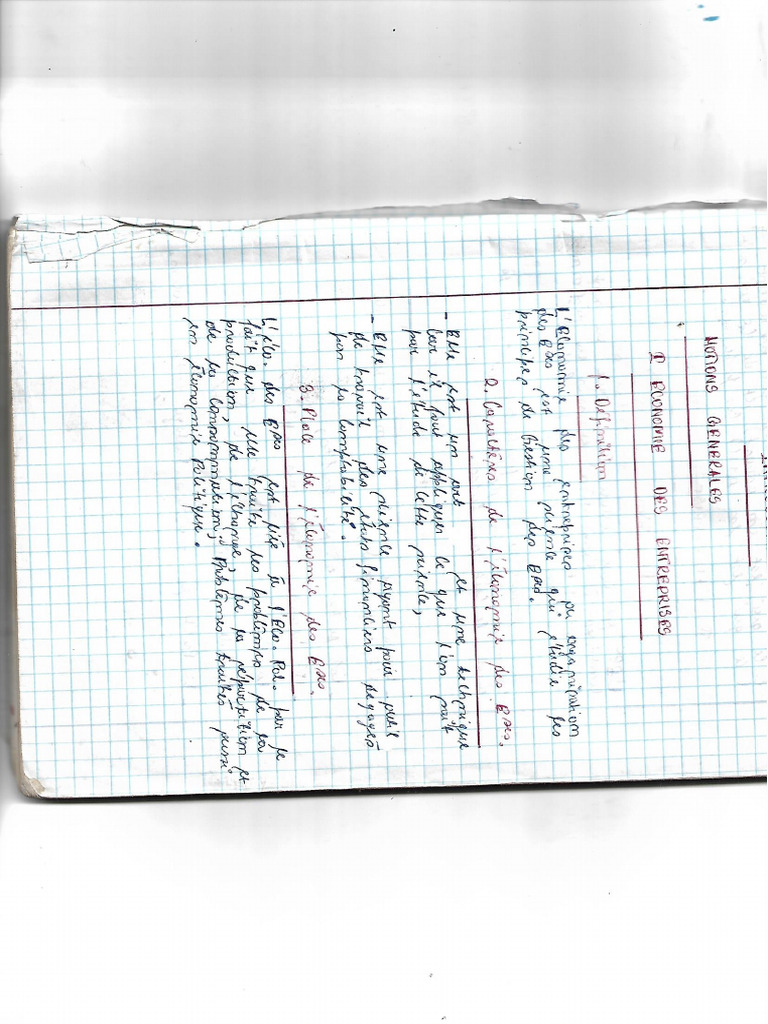 NOTIONS GENERALES
I ECONOMIE DES ENTREPRISES
1. Définition
L'Economie des entreprises ou organisation
des Eses est une science qui étudie les
principes de Gestion des Eses.
2. Caractères de l'économie des Eses.
- Elle est un art et une technique
car il faut appliquer ce que l'on sait
par l'étude de cette science,
- Elle est une science ayant pour
de travail des états financiers dégagés
par la comptabilité.
3. Place de l'économie des Eses.
L'éco. des Eses est liée à l'Eco. Pol. par le
fait que elle traite les problèmes de la
production, de l'échange, de la répartition et
de la consommation, Problèmes traités aussi
en économie Politique.